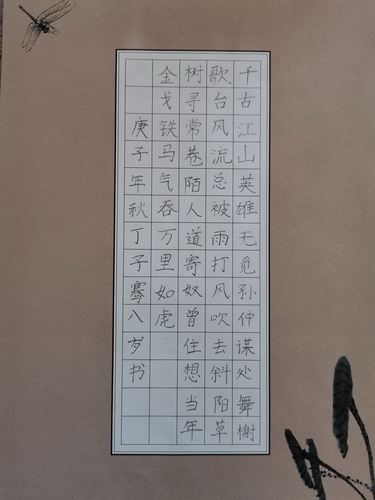 千古江山英雄无觅孙仲谋处舞榭
歌台风流总被雨打风吹去斜阳草
树寻常巷陌人道寄奴曾住想当年
金戈铁马气吞万里如虎
庚子年秋丁子骞八岁书